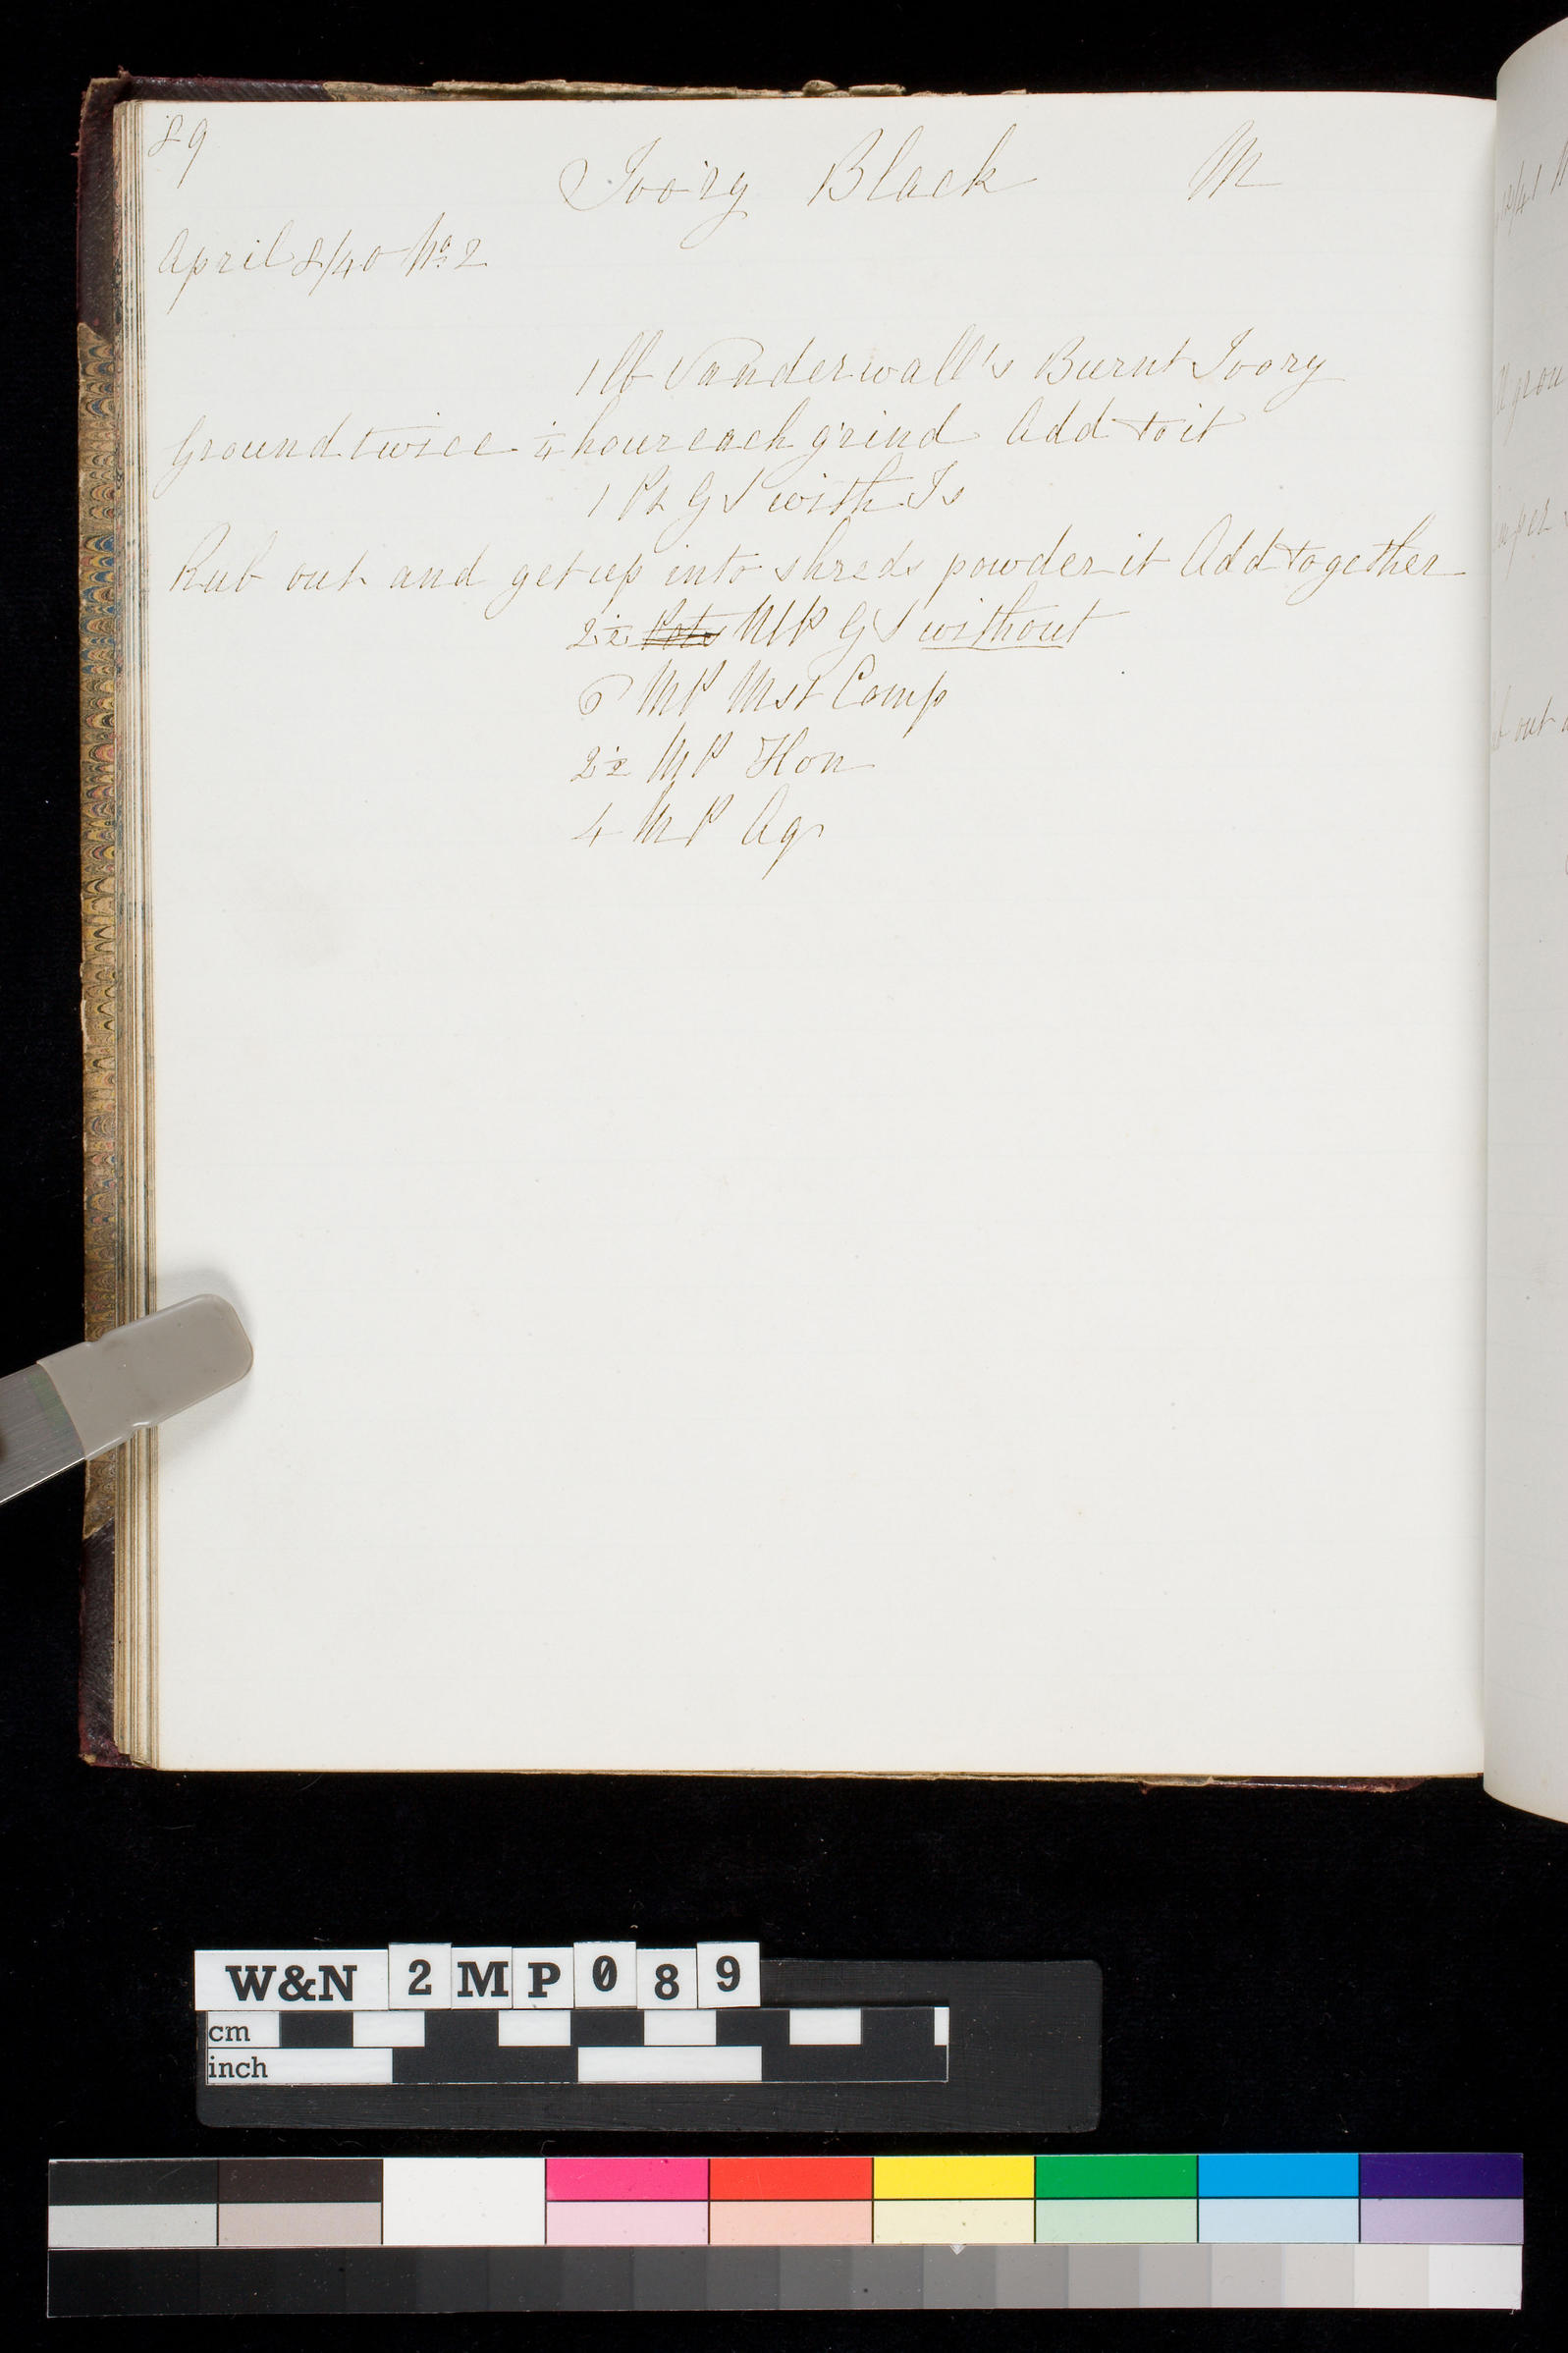 89
Ivory Black M
April 8/40 No 2
1 lb Vanderwall's Burnt Ivory
Ground twice 1/4 hour each grind Add to it
1 Pt GS with Is
Rub out and get up into shreds powder it Add together
2 1/2 Pots MP GS without
6 MP Mst Comp
2 1/2 MP Hon
4 MP Aq
out
W&N 2MP089
cm
inch